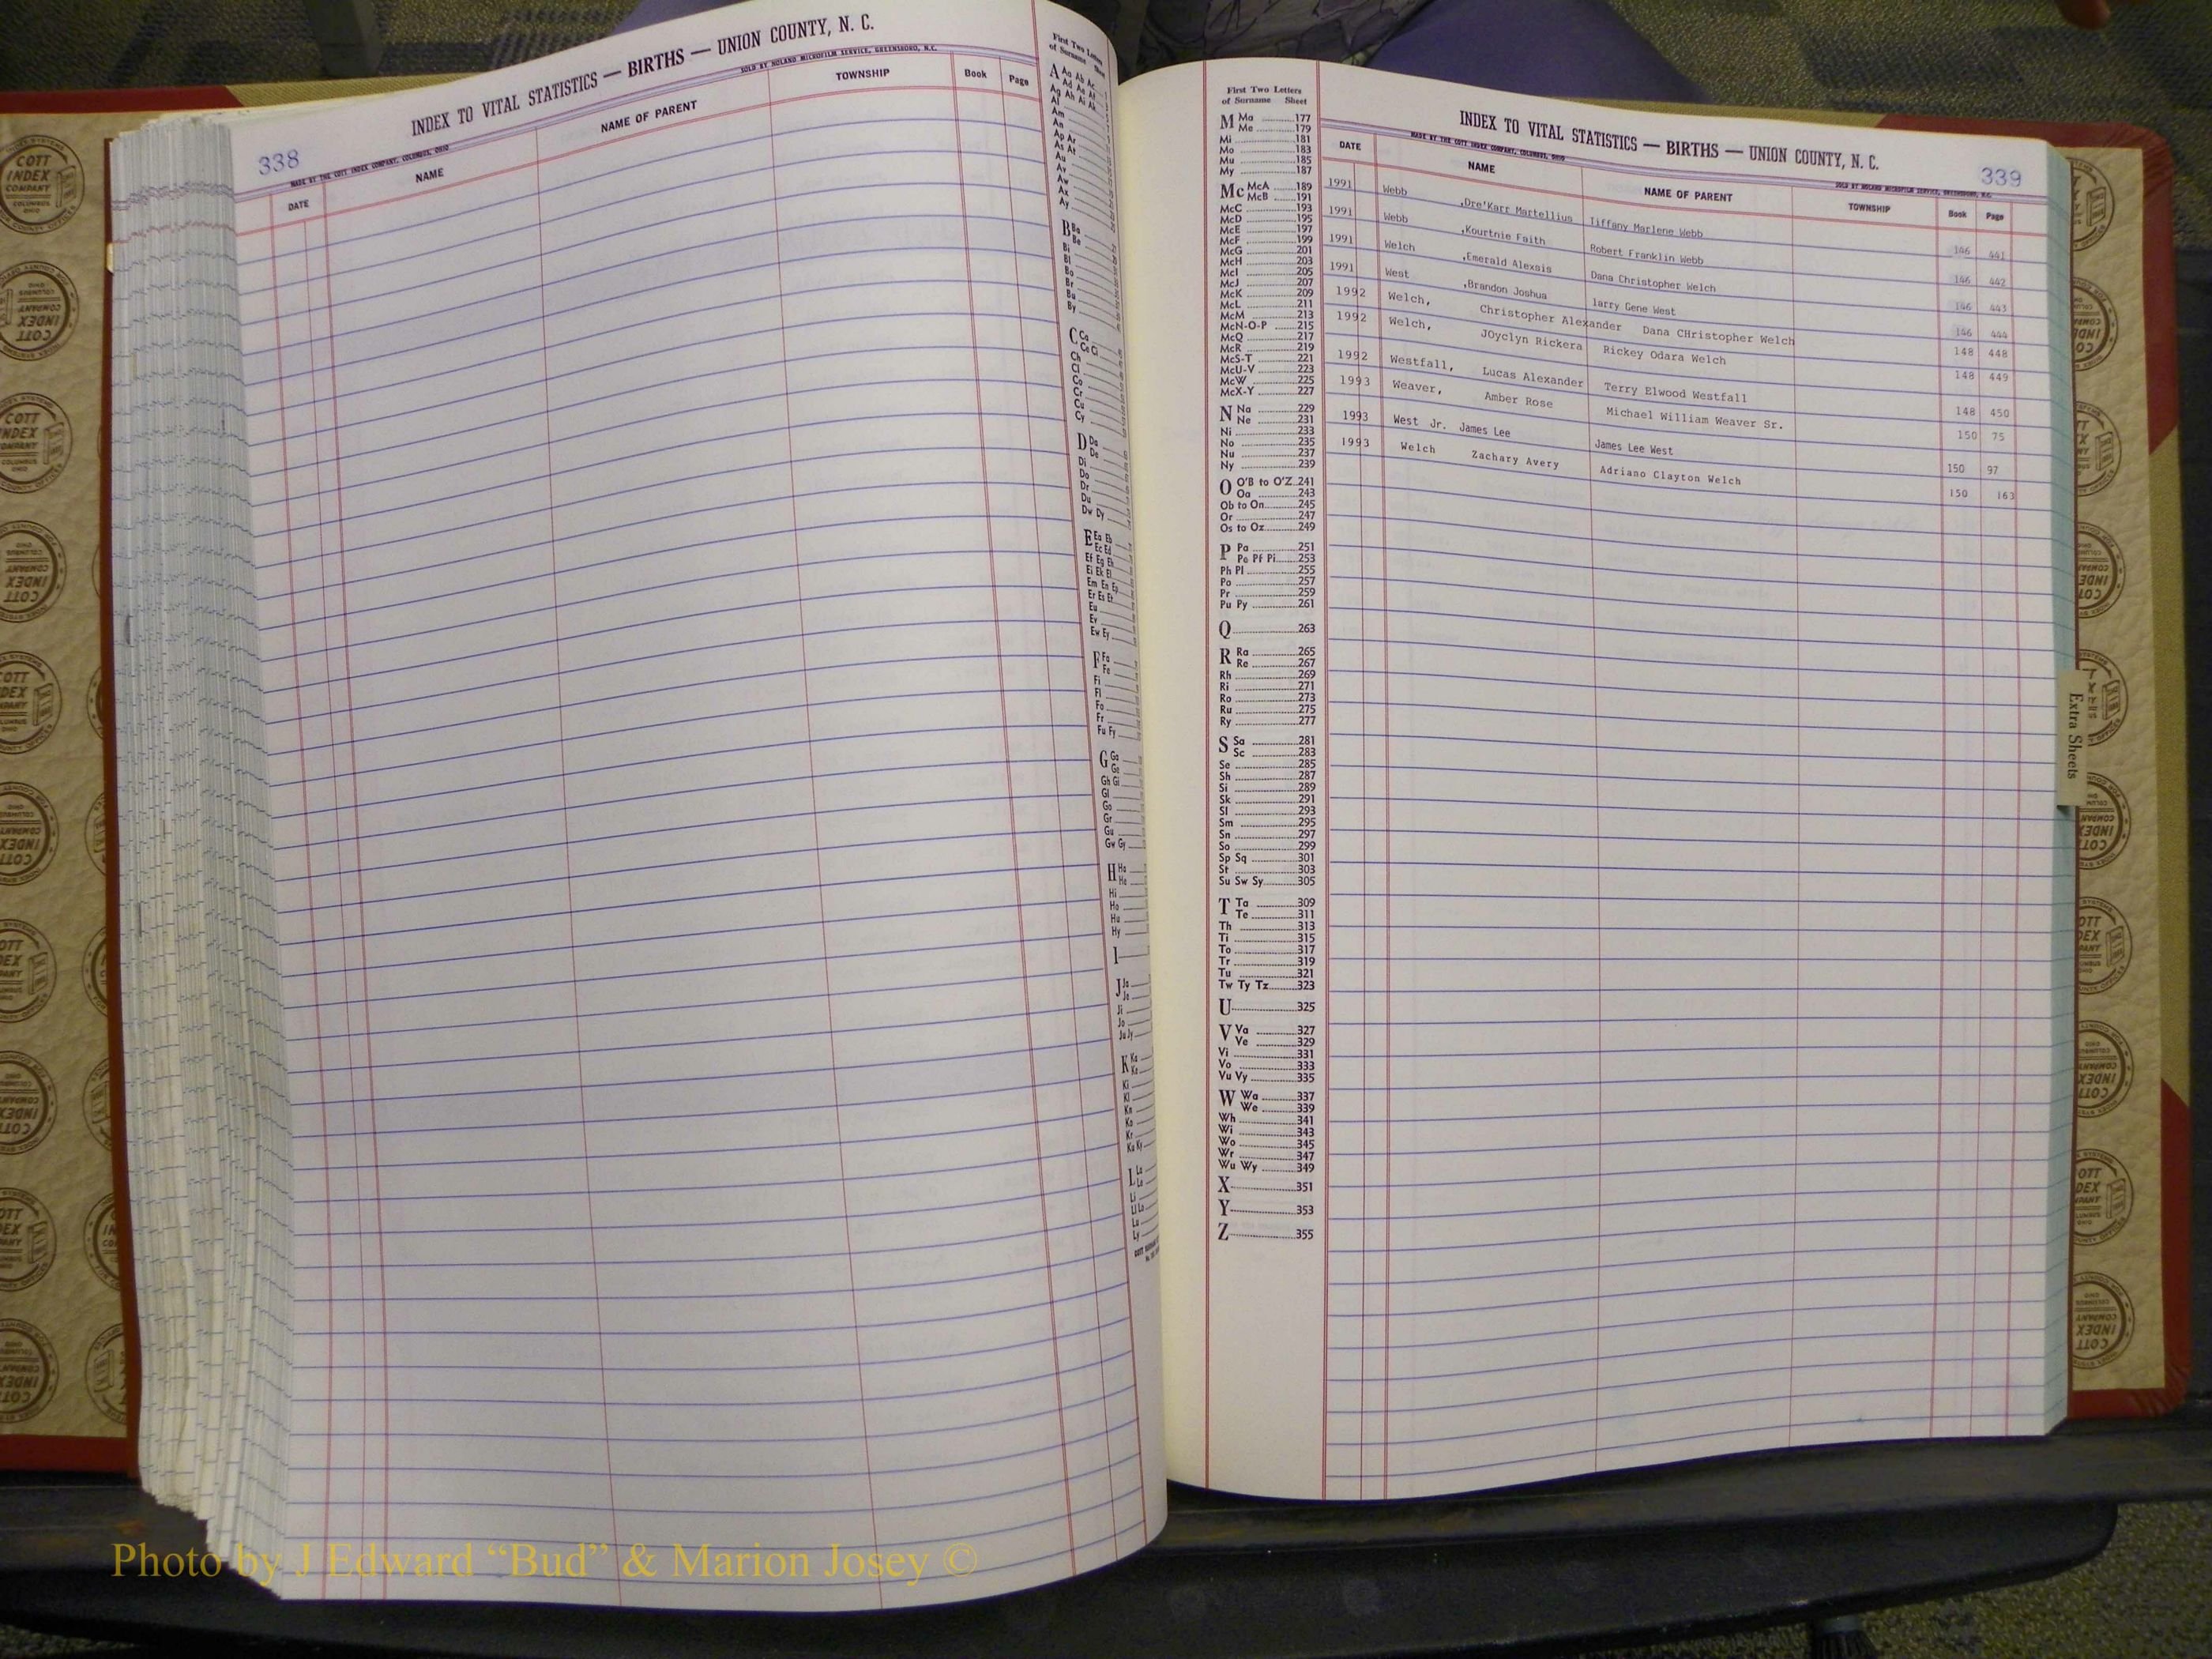 INDEX TO VITAL STATISTICS — BIRTHS — UNION COUNTY, N. C.
338
MADE BY THE COTT INDEX COMPANY, COLUMBUS, OHIO
SOLD BY NOLAND MICROFILM SERVICE, GREENSBORO, N.C.
DATE NAME NAME OF PARENT TOWNSHIP Book Page
First Two Letters
of Surname Sheet
A Aa Ab Ac
Ad Ae Af
Ag Ah Ai Ak
Al
Am
An
Ap Ar
As At
Au
Av
Aw
Ax
Ay
B Ba
Be
Bi
Bl
Bo
Br
Bu
By
C Ca
Ce Ci
Ch
Cl
Co
Cr
Cu
Cy
D Da
De
Di
Do
Dr
Du
Dw Dy
E Ea Eb
Ec Ed
Ef Eg Eh
Ei Ek El
Em En Ep
Er Es Et
Eu
Ev
Ew Ey
F Fa
Fe
Fi
Fl
Fo
Fr
Fu Fy
G Ga
Ge
Gh Gi
Gl
Go
Gr
Gu
Gw Gy
H Ha
He
Hi
Ho
Hu
Hy
I
J Ja
Je
Ji
Jo
Ju Jy
K Ka
Ke
Ki
Kl
Kn
Ko
Kr
Ku Ky
L La
Le
Li
Ll Lo
Lu
Ly
First Two Letters
of Surname Sheet
M Ma 177
Me 179
Mi 181
Mo 183
Mu 185
My 187
Mc McA 189
McB 191
McC 193
McD 195
McE 197
McF 199
McG 201
McH 203
McI 205
McJ 207
McK 209
McL 211
McM 213
McN-O-P 215
McQ 217
McR 219
McS-T 221
McU-V 223
McW 225
McX-Y 227
N Na 229
Ne 231
Ni 233
No 235
Nu 237
Ny 239
O O'B to O'Z 241
Oa 243
Ob to On 245
Or 247
Os to Oz 249
P Pa 251
Pe Pf Pi 253
Ph Pl 255
Po 257
Pr 259
Pu Py 261
Q 263
R Ra 265
Re 267
Rh 269
Ri 271
Ro 273
Ru 275
Ry 277
S Sa 281
Sc 283
Se 285
Sh 287
Si 289
Sk 291
Sl 293
Sm 295
Sn 297
So 299
Sp Sq 301
St 303
Su Sw Sy 305
T Ta 309
Te 311
Th 313
Ti 315
To 317
Tr 319
Tu 321
Tw Ty Tz 323
U 325
V Va 327
Ve 329
Vi 331
Vo 333
Vu Vy 335
W Wa 337
We 339
Wh 341
Wi 343
Wo 345
Wr 347
Wu Wy 349
X 351
Y 353
Z 355
INDEX TO VITAL STATISTICS — BIRTHS — UNION COUNTY, N. C.
339
MADE BY THE COTT INDEX COMPANY, COLUMBUS, OHIO
SOLD BY NOLAND MICROFILM SERVICE, GREENSBORO, N.C.
DATE NAME NAME OF PARENT TOWNSHIP Book Page
1991 Webb ,Dre'Karr Martellius Tiffany Marlene Webb 146 441
1991 Webb ,Kourtnie Faith Robert Franklin Webb 146 442
1991 Welch ,Emerald Alexsis Dana Christopher Welch 146 443
1991 West ,Brandon Joshua larry Gene West 146 444
1992 Welch, Christopher Alexander Dana CHristopher Welch 148 448
1992 Welch, JOyclyn Rickera Rickey Odara Welch 148 449
1992 Westfall, Lucas Alexander Terry Elwood Westfall 148 450
1993 Weaver, Amber Rose Michael William Weaver Sr. 150 75
1993 West Jr. James Lee James Lee West 150 97
1993 Welch Zachary Avery Adriano Clayton Welch 150 163
Extra Sheets
COTT
INDEX
COMPANY
COLUMBUS
OHIO
Photo by J Edward “Bud” & Marion Josey ©